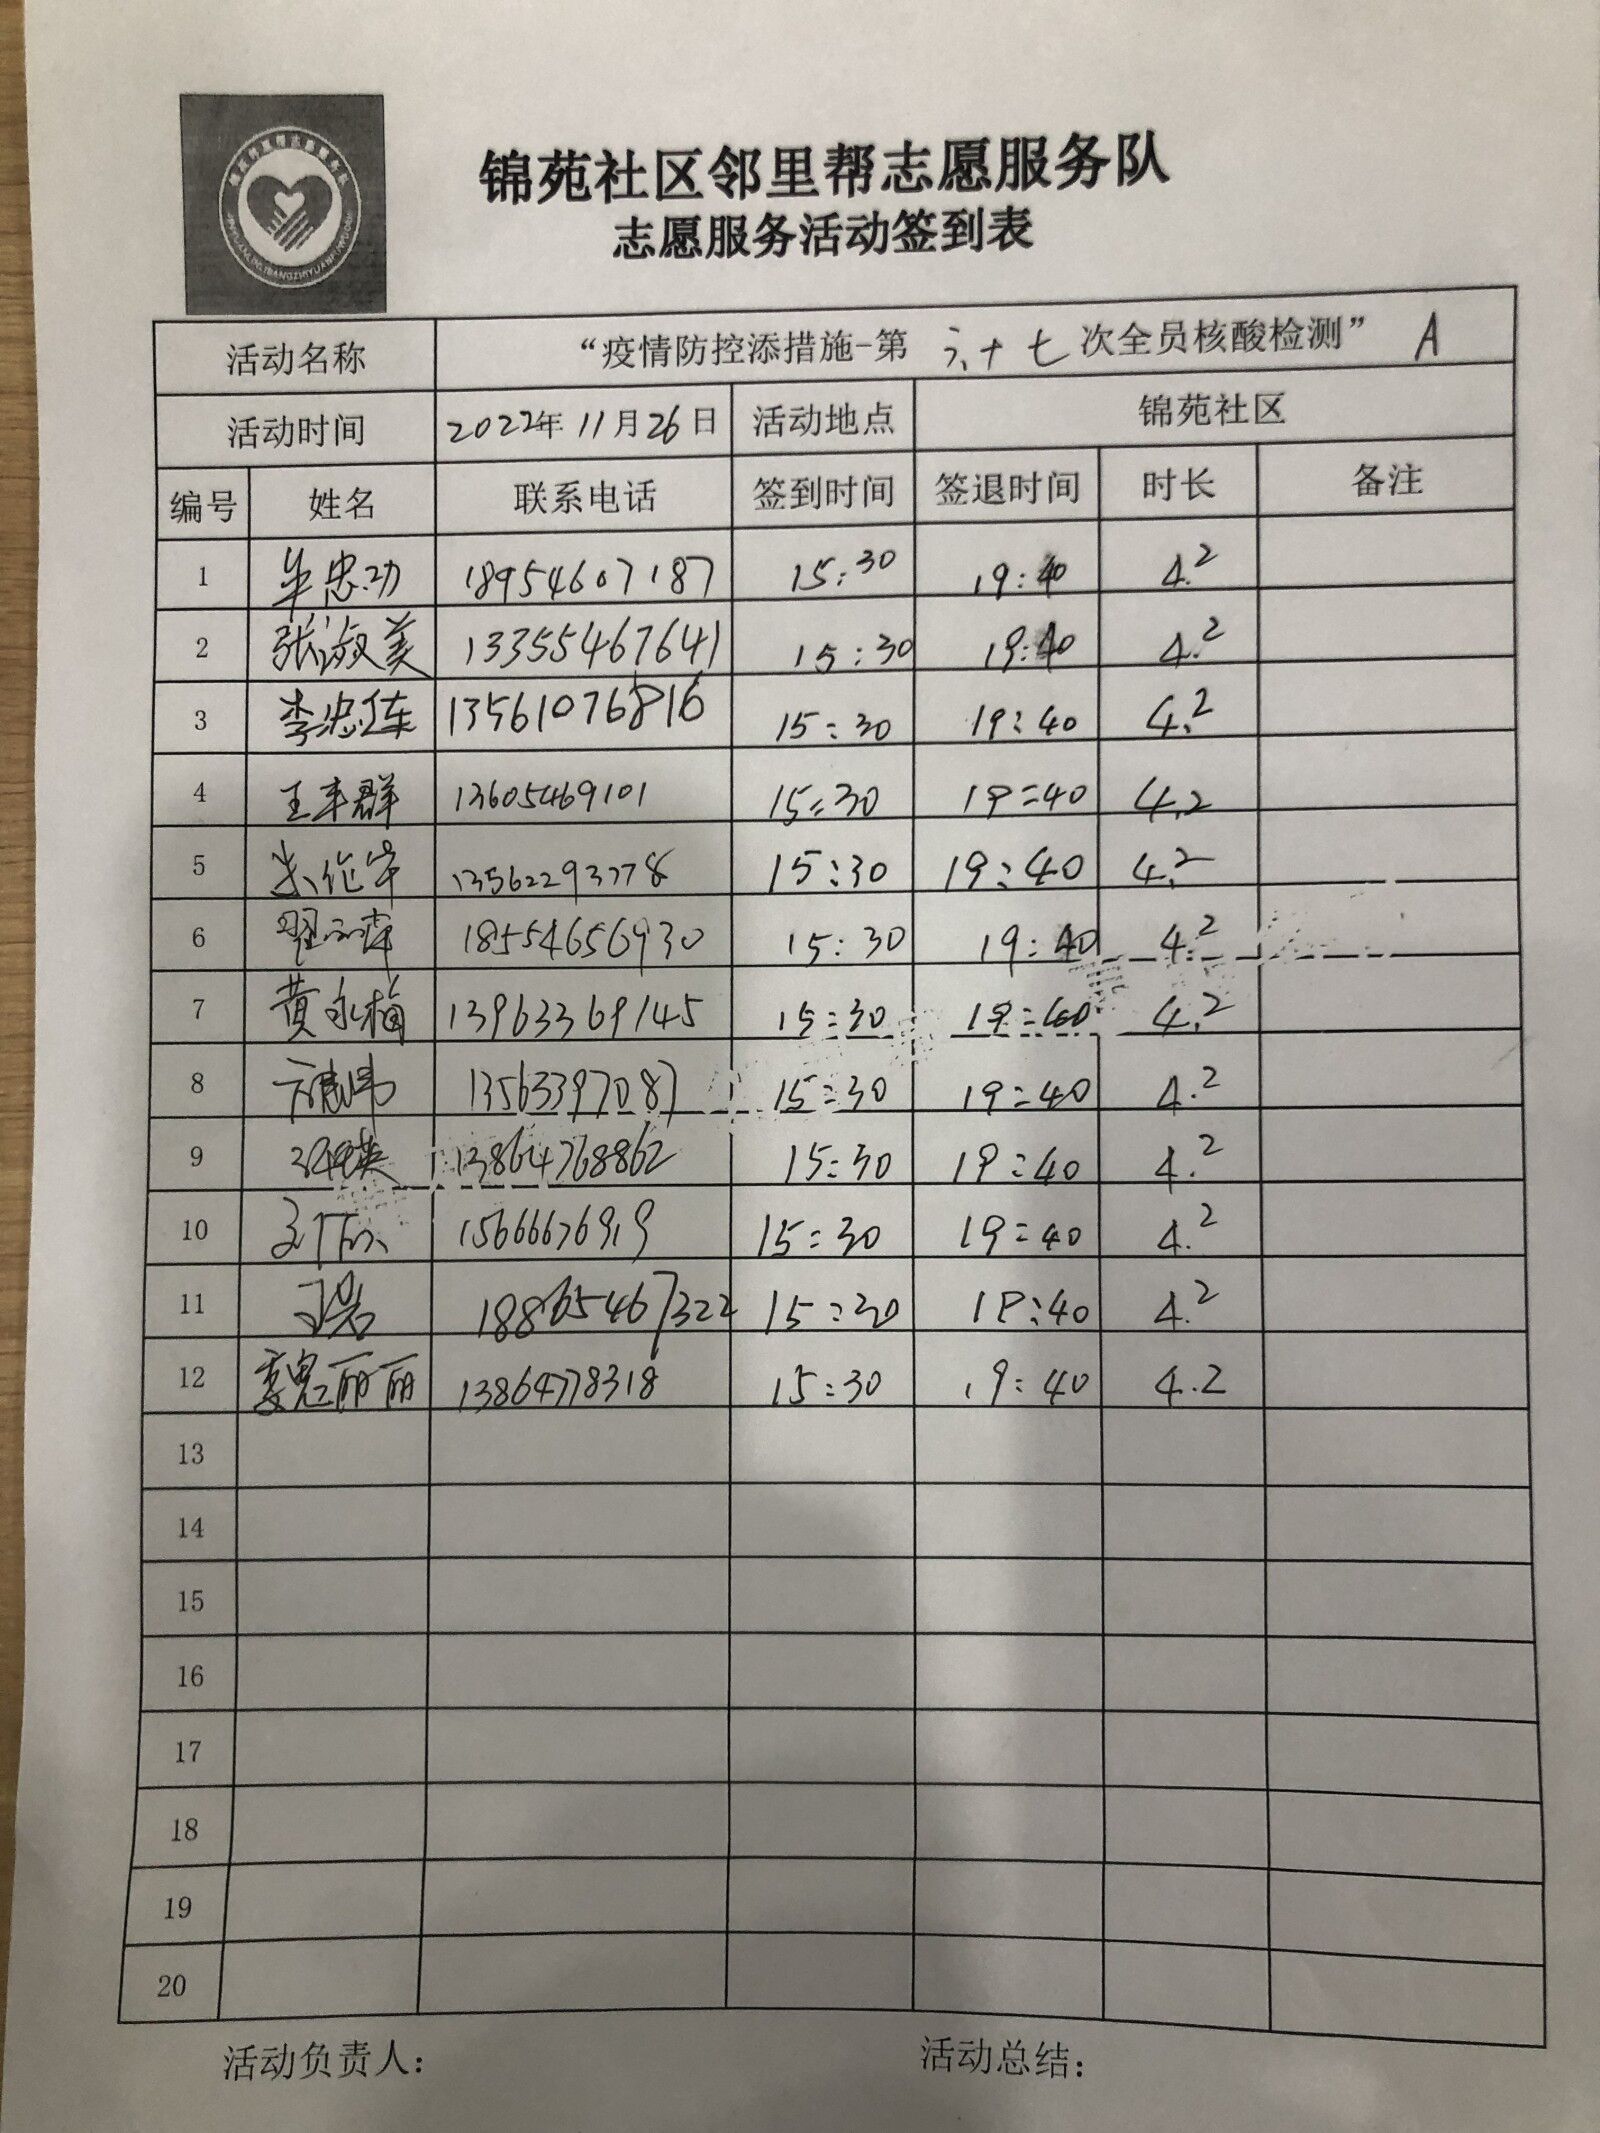 锦苑社区邻里帮志愿服务队
志愿服务活动签到表
活动名称 “疫情防控添措施-第六十七次全员核酸检测” A
活动时间 2022年11月26日 活动地点 锦苑社区
编号 姓名 联系电话 签到时间 签退时间 时长 备注
1 牟忠功 18954607187 15:30 19:40 4.2
2 张淑美 13355467641 15:30 19:40 4.2
3 李忠佳 13561076816 15:30 19:40 4.2
4 王丰群 13605469101 15:30 19:40 4.2
5 朱作宇 13562293778 15:30 19:40 4.2
6 18554656930 15:30 19:40 4.2
7 黄永梅 13963369145 15:30 19:40 4.2
8 13563397087 15:30 19:40 4.2
9 13864768862 15:30 19:40 4.2
10 15666676919 15:30 19:40 4.2
11 18865467322 15:30 19:40 4.2
12 魏丽丽 13864778318 15:30 19:40 4.2
13
14
15
16
17
18
19
20
活动负责人： 活动总结：